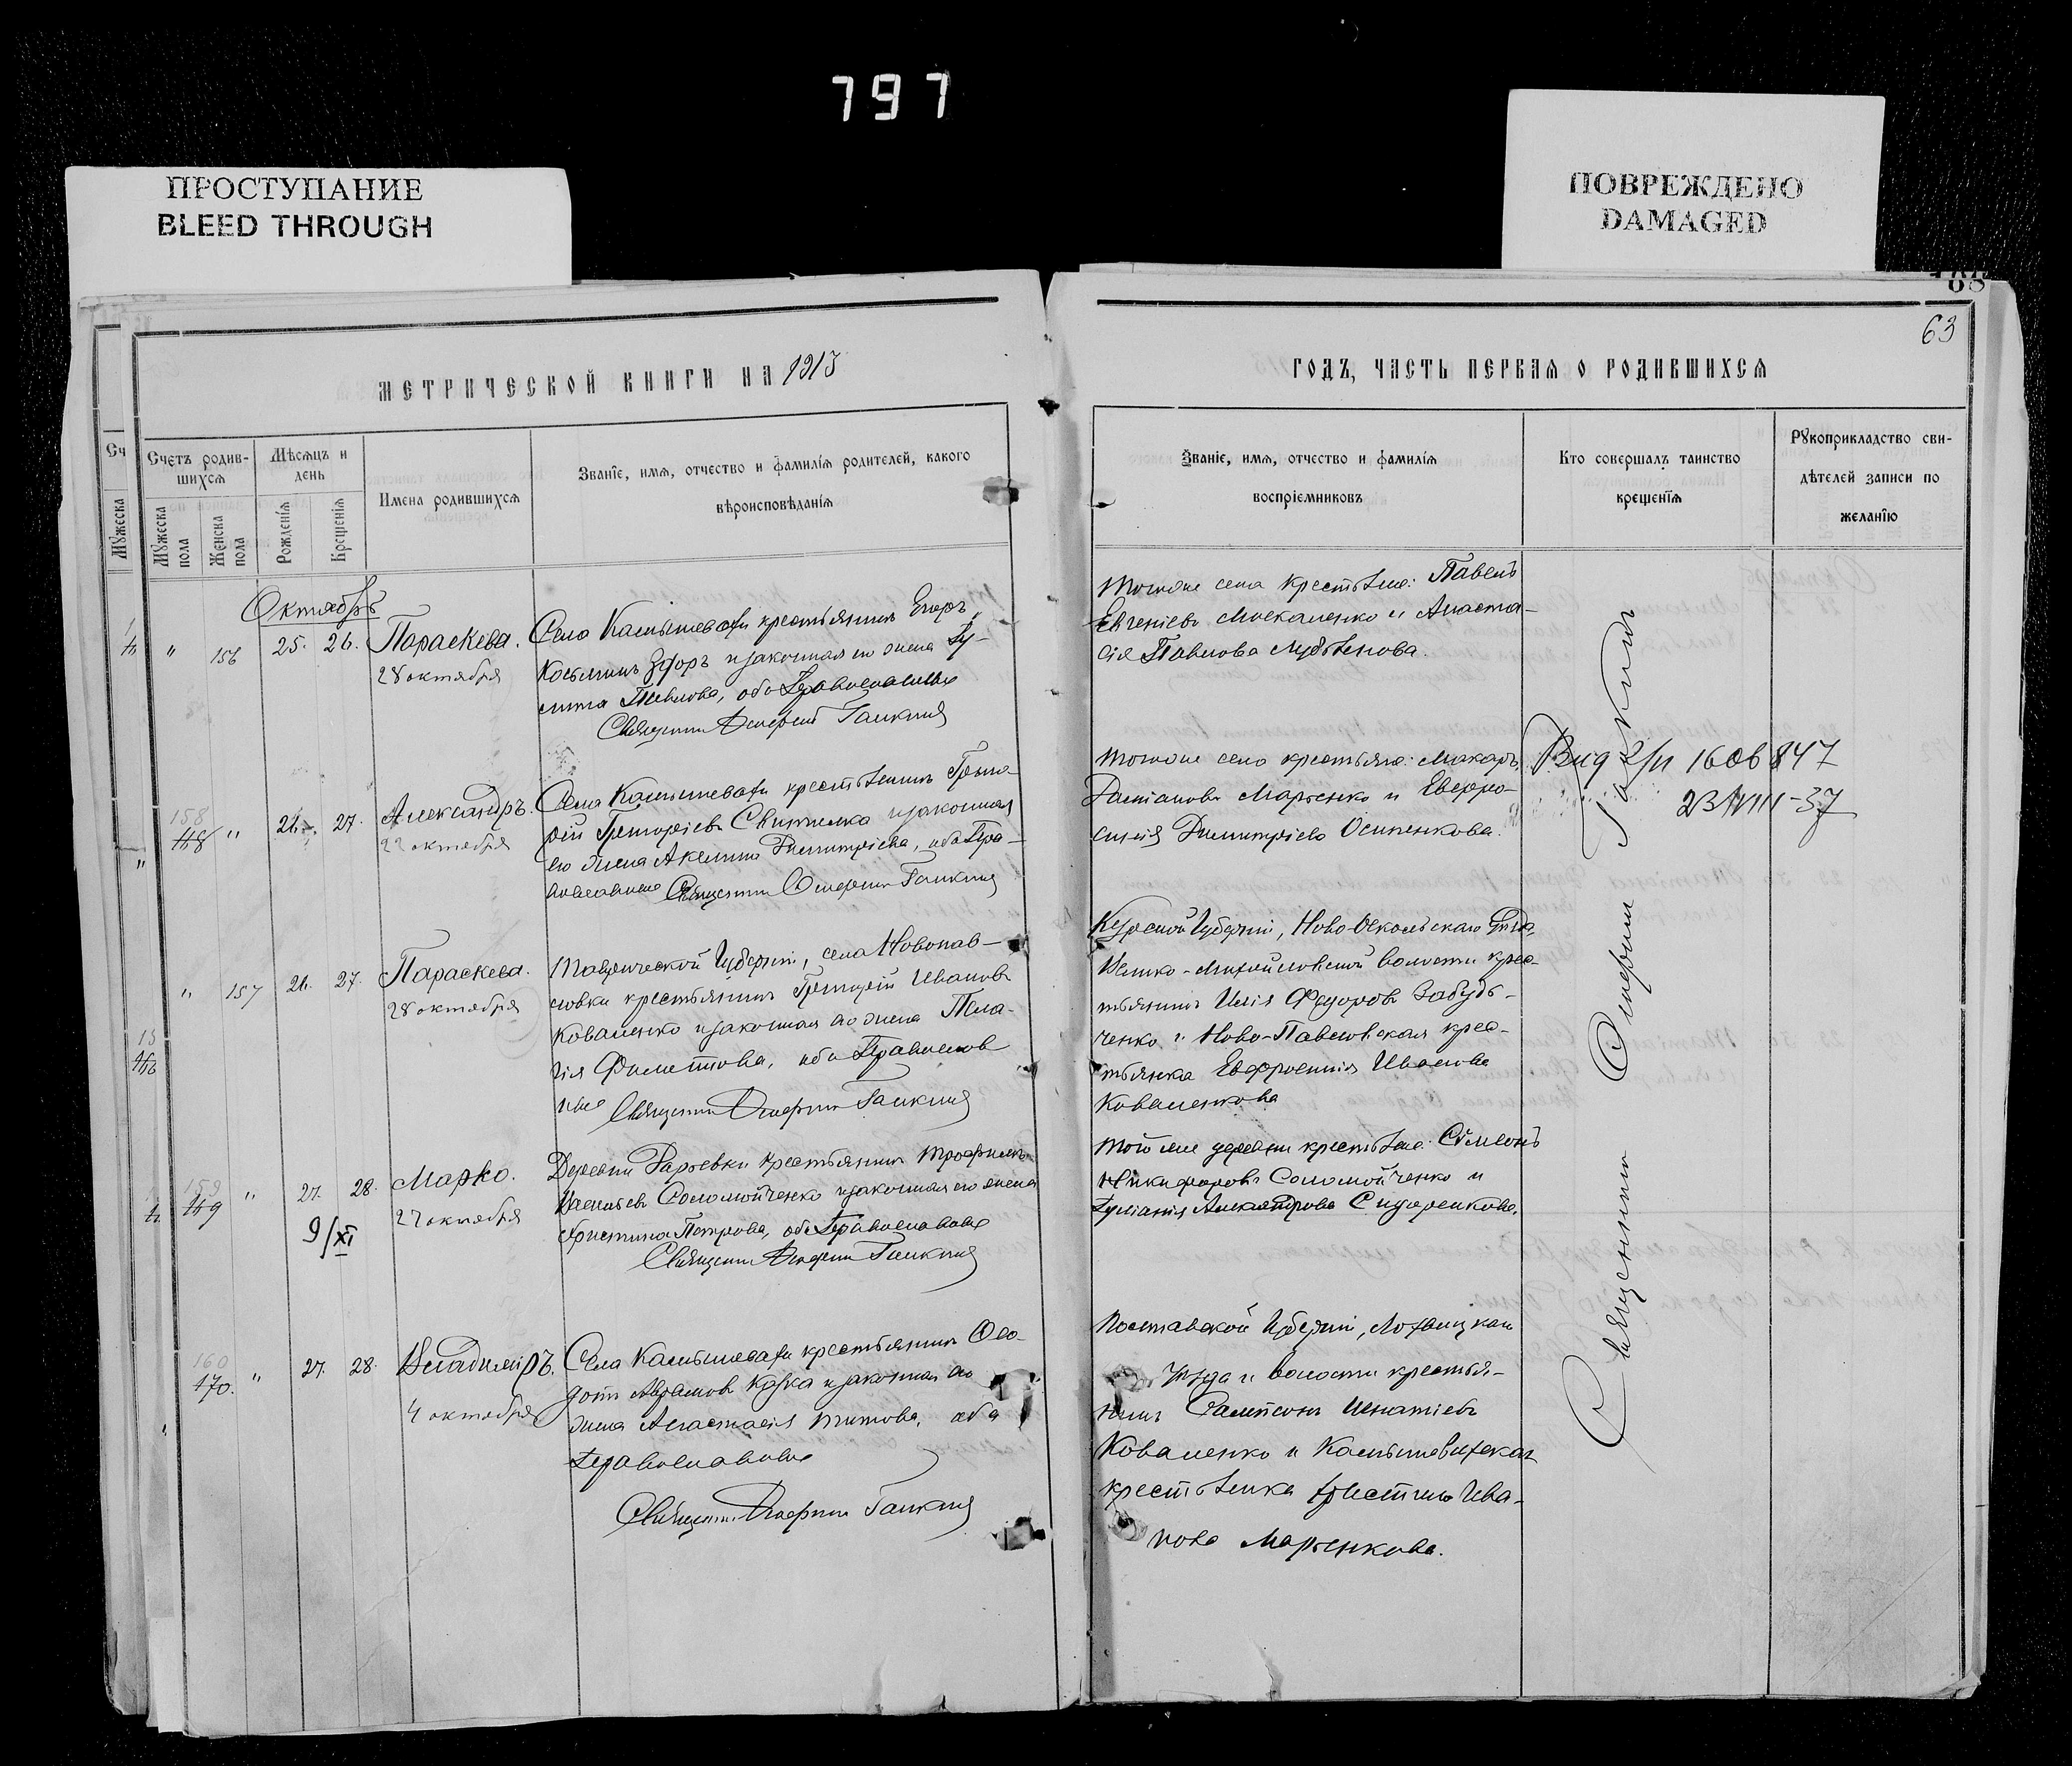 797
ПРОСТУПАНИЕ
BLEED THROUGH
ПОВРЕЖДЕНО
DAMAGED
68
63
МЕТРИЧЕСКОЙ КНИГИ НА 1913
ГОДЪ, ЧАСТЬ ПЕРВАЯ О РОДИВШИХСЯ
Сч
Мужеска
Счетъ родив-
шихся
Мужеска
пола
Женска
пола
Мѣсяцъ и
день
Рожденія
Крещенія
Имена родившихся
Званіе, имя, отчество и фамилія родителей, какого
вѣроисповѣданія
Званіе, имя, отчество и фамилія
воспріемниковъ
Кто совершалъ таинство
крещенія
Рукоприкладство сви-
дѣтелей записи по
желанію
Октябрь
" 156 25. 26. Параскева.
28 октября
Села Камышевахи крестьянинъ Егоръ
Косьминъ и законная его жена
Павлова, оба Православные
Священникъ Онуфрій
Тогоже села крестьяне: Павелъ
Евгеніевъ Москаленко и Анаста-
сія Павлова
158
168 " 26. 27. Александръ.
22 октября
Села Камышевахи крестьянинъ Григо-
рій Григоріевъ и законная
его жена Акелина Димитріева, оба Пра-
вославные Священникъ Онуфрій
Тогоже села крестьяне: Макаръ
Марченко и Евфро-
синія Димитріева Осипенкова.
Вид 2/п 1606847
23/VIII-37
" 157 26. 27. Параскева.
28 октября
Таврической Губерніи, села Новопав-
ловки крестьянинъ Григорій Ивановъ
Коваленко и законная его жена Пела-
гія Филиппова, оба Православ
ные Священникъ Онуфрій
Курской Губерніи, Ново-Оскольскаго уѣзда,
Велико-Михайловской волости крес-
тьянинъ Илія Федоровъ
и Ново-Павловская крес-
тьянка Евфросинія Иванова
Коваленкова
159
169 " 27. 28. Марко.
27 октября
9/XI
Деревни крестьянинъ Трофимъ
Соломойченко и законная его жена
Христина Петрова, оба Православные
Священникъ Онуфрій
Той же деревни крестьяне: Сѵмеонъ
Никифоровъ Соломойченко и
Іуліанія Александрова Сидоренкова.
160
170. " 27. 28. Владиміръ.
4 октября
Села Камышевахи крестьянинъ Ѳео-
дотъ Аврамовъ и законная его
жена Анастасія Титова, оба
Православные
Священникъ Онуфрій
Полтавской Губерніи, Лохвицкаго
уѣзда и волости крестья-
нинъ Сампсонъ Игнатіевъ
Коваленко и Камышевахская
крестьянка Христина Ива-
нова Марченкова.
Священникъ Онуфрій